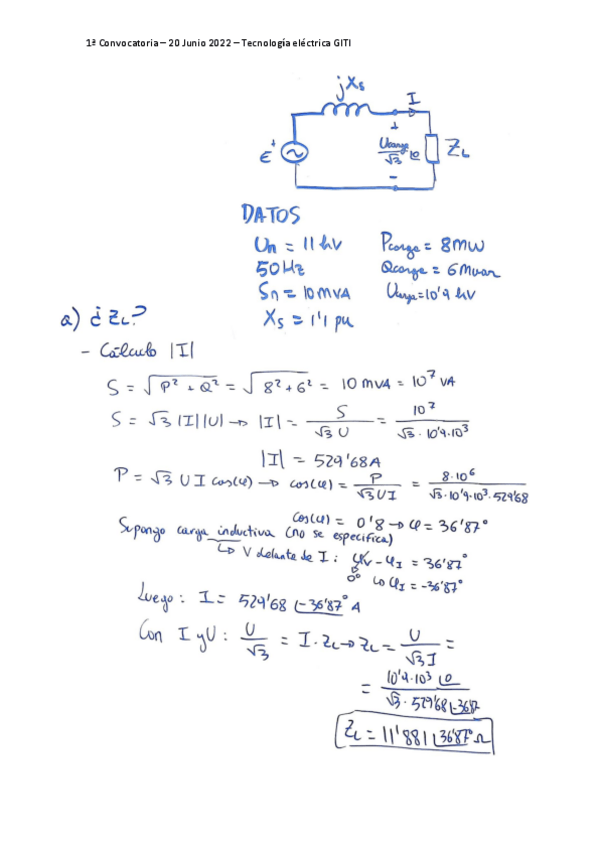 1ª Convocatoria – 20 Junio 2022 – Tecnología eléctrica GITI
jXs
I
+
E
+
Ucarga/√3 ⌊0
ZL
-
DATOS
Un = 11 kV Pcarga = 8MW
50Hz Qcarga = 6Mvar
Sn = 10 MVA Ucarga = 10'9 kV
Xs = 1'1 pu
a) ¿ZL?
- Cálculo |I|
S = √P² + Q² = √8² + 6² = 10 MVA = 10⁷ VA
S = √3 |I||U| → |I| = S/√3 U = 10⁷/√3 · 10'9·10³
|I| = 529'68 A
P = √3 U I cos(φ) → cos(φ) = P/√3 U I = 8·10⁶/√3·10'9·10³·529'68
cos(φ) = 0'8 → φ = 36'87°
Supongo carga inductiva (no se especifica)
↳ V delante de I : φV - φI = 36'87°
0° ↳ φI = -36'87°
Luego: I = 529'68 ⌊-36'87° A
Con I y U : U/√3 = I · ZL → ZL = U/√3 I =
= 10'9·10³ ⌊0/√3 · 529'68 ⌊-36'87
ZL = 11'881 ⌊36'87° Ω